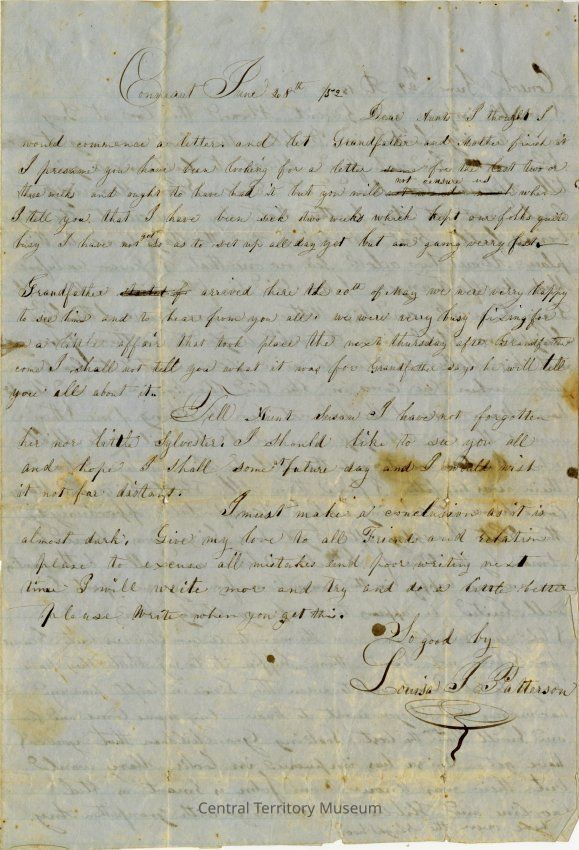 Conneaut June 28th /52
Dear Aunt I thought I
would commence a letter and let Grandfather and Mother finish it
I presume you have been looking for a letter for the last two or
three weeks and ought to have had it but you will not censure us when
I tell you that I have been sick two weeks which kept our folks quite
busy I have not got so as to set up all day yet but am gaining verry fast
Grandfather arrived here the 20th of May we were verry happy
to see him and to hear from you all. we were verry busy fixing for
a little affair that took place the next thursday after Grandfather
come I shall not tell you what it was for Grandfather says he will tell
you all about it.
Tell Aunt Susan I have not forgotten
her nor little Sylvester. I should like to see you all
and hope I shall some future day and I would wish
it not far distant.
I must make a conclusion as it is
almost dark. Give my love to all Friends and relation
please to excuse all mistakes and poor writing next
time I will write mor and try and do a little better
please write when you get this.
So good by
Louisa J Patterson
Central Territory Museum